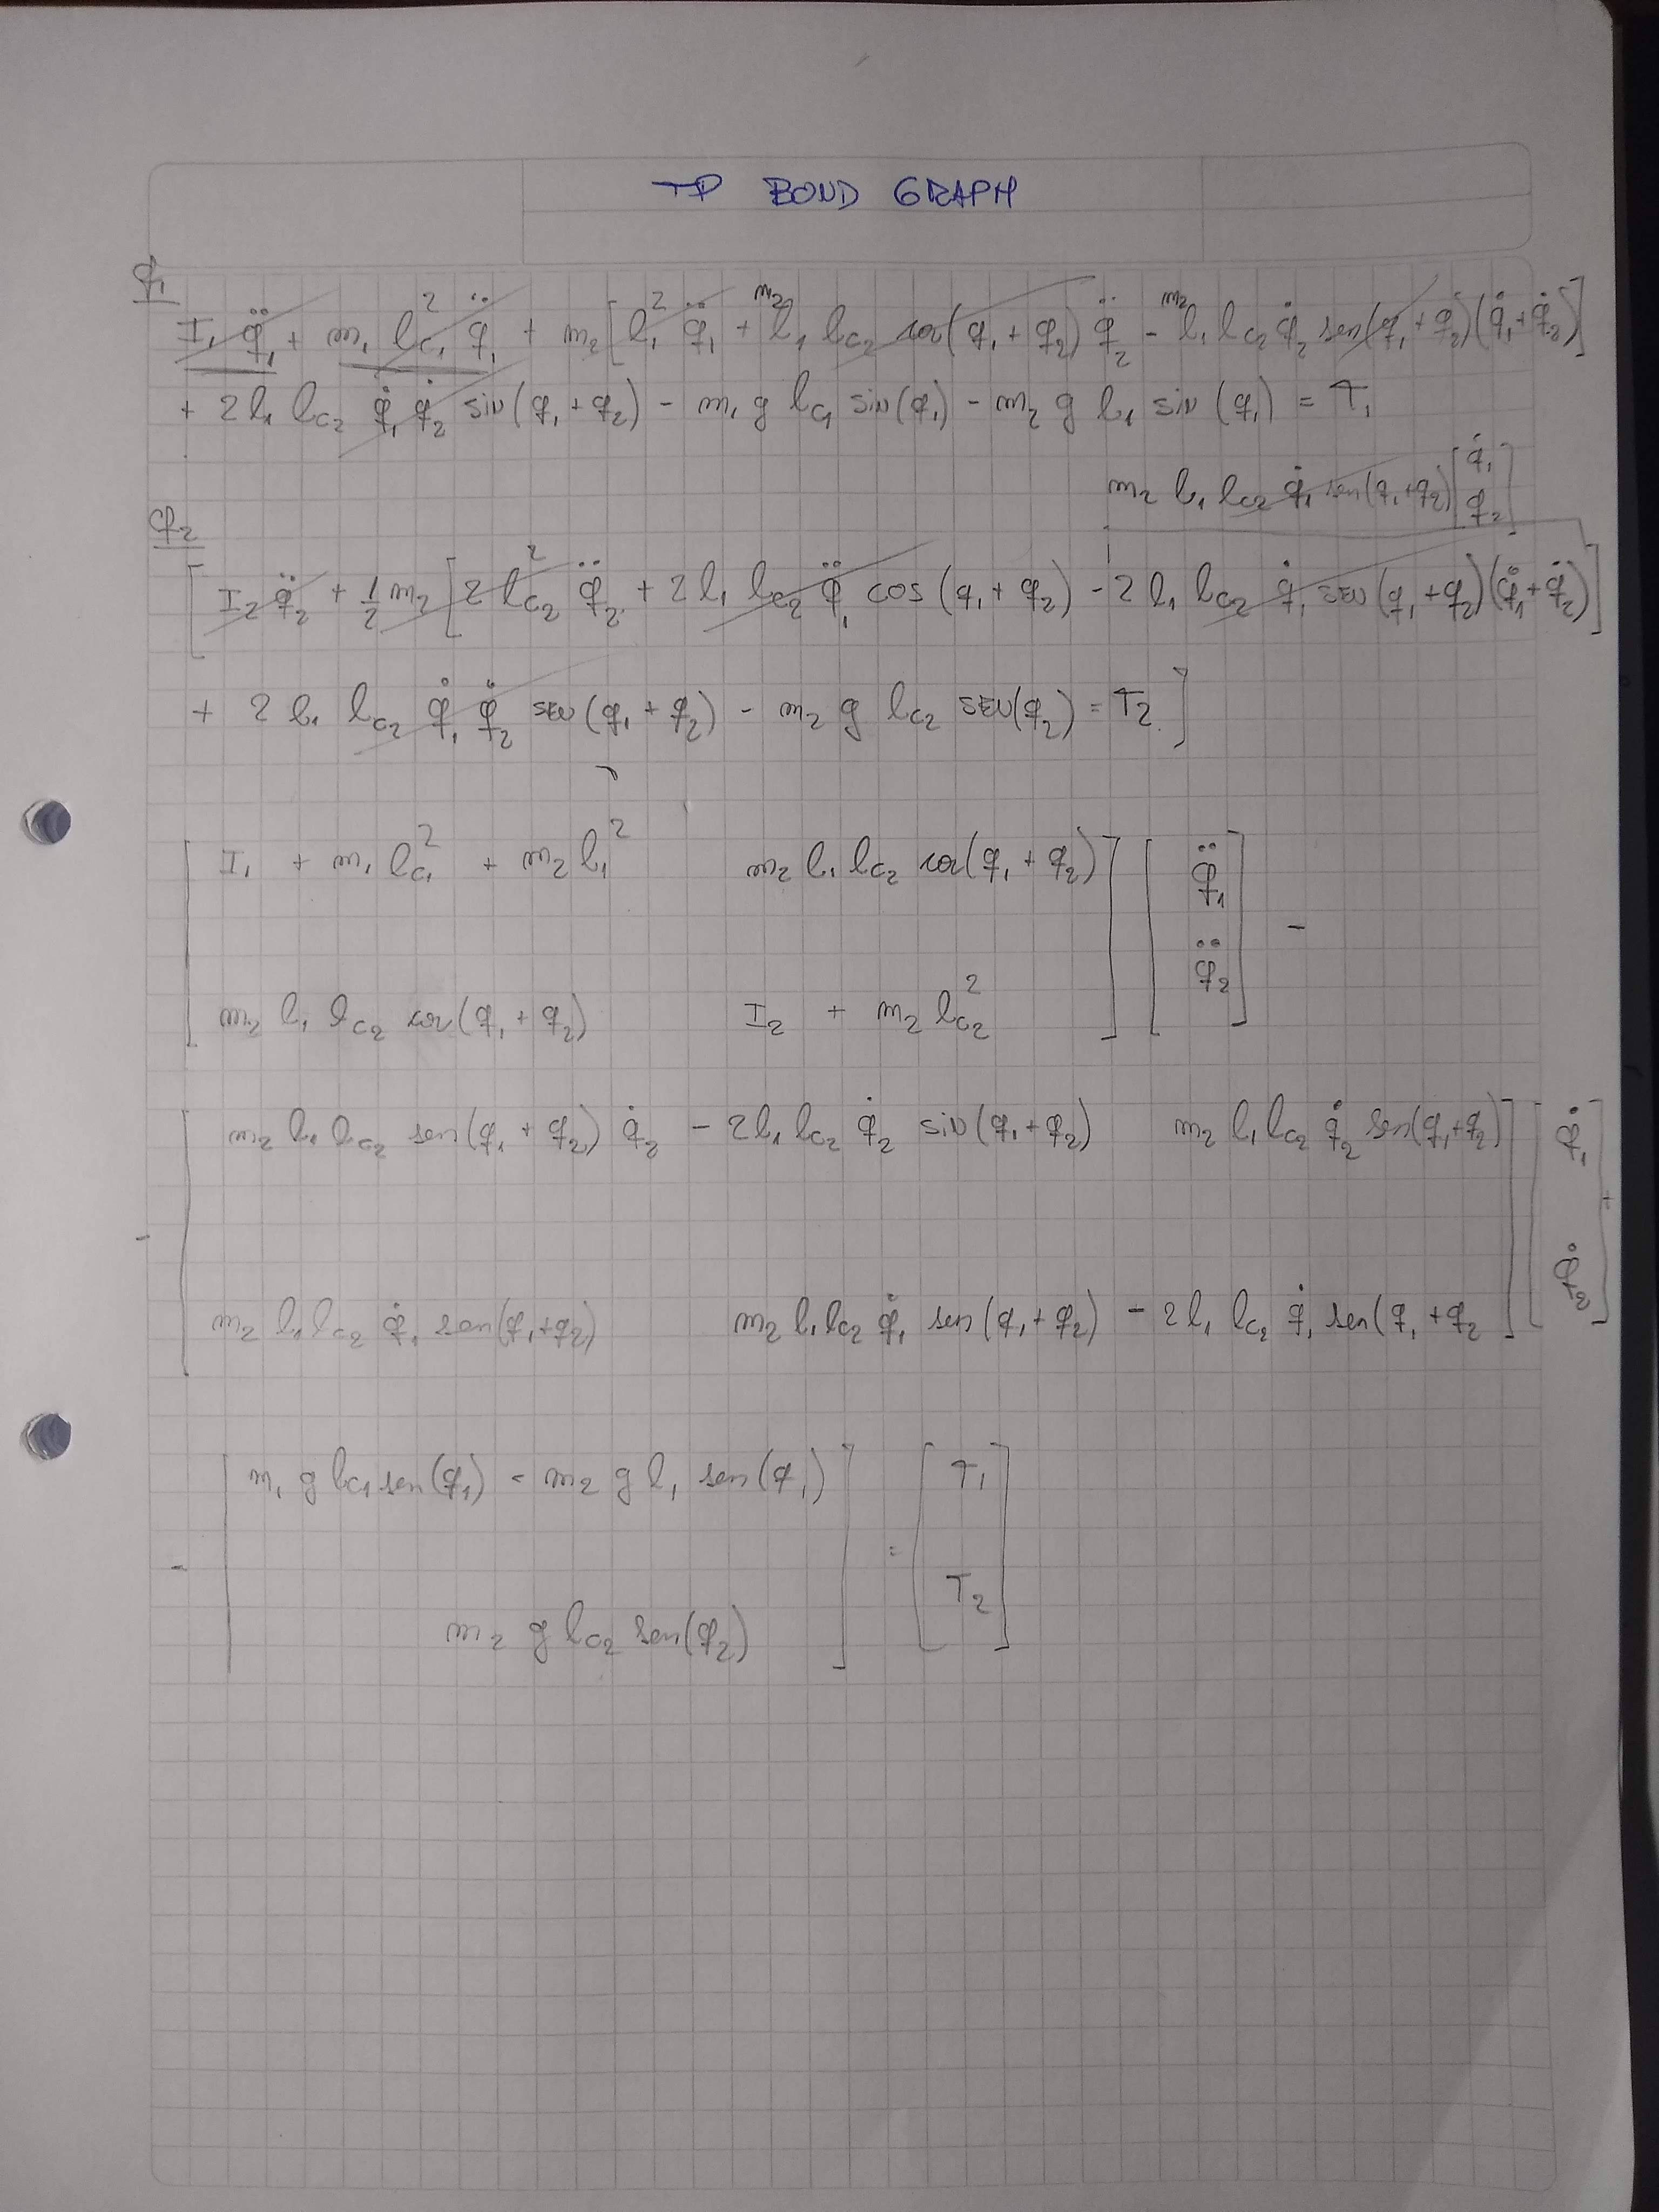 TP BOND GRAPH
q₁
I₁ q̈₁ + m₁ l_c₁² q̈₁ + m₂ [ l₁² q̈₁ + m₂ l₁ l_c₂ cos(q₁ + q₂) q̈₂ - m₂ l₁ l_c₂ q̇₂ sen(q₁ + q₂)(q̇₁ + q̇₂) ]
+ 2 l₁ l_c₂ q̇₁ q̇₂ sin(q₁ + q₂) - m₁ g l_c₁ sin(q₁) - m₂ g l₁ sin(q₁) = T₁
m₂ l₁ l_c₂ q̇₁ sen(q₁+q₂) [ q̇₁
q₂ ]
q₂
[ I₂ q̈₂ + 1/2 m₂ [ 2 l_c₂² q̈₂ + 2 l₁ l_c₂ q̈₁ cos(q₁ + q₂) - 2 l₁ l_c₂ q̇₁ sen(q₁ + q₂)(q̇₁ + q̇₂) ]
+ 2 l₁ l_c₂ q̇₁ q̇₂ sen(q₁ + q₂) - m₂ g l_c₂ SEN(q₂) = T₂ ]
[ I₁ + m₁ l_c₁² + m₂ l₁² m₂ l₁ l_c₂ cos(q₁ + q₂) ] [ q̈₁ ] -
[ m₂ l₁ l_c₂ cos(q₁ + q₂) I₂ + m₂ l_c₂² ] [ q̈₂ ]
- [ m₂ l₁ l_c₂ sen(q₁ + q₂) q̇₂ - 2 l₁ l_c₂ q̇₂ sin(q₁ + q₂) m₂ l₁ l_c₂ q̇₂ sen(q₁+q₂) ] [ q̇₁ ] +
[ m₂ l₁ l_c₂ q̇₁ sen(q₁+q₂) m₂ l₁ l_c₂ q̇₁ sen(q₁ + q₂) - 2 l₁ l_c₂ q̇₁ sen(q₁ + q₂ ] [ q̇₂ ]
- [ m₁ g l_c₁ sen(q₁) - m₂ g l₁ sen(q₁) ] = [ T₁ ]
[ m₂ g l_c₂ sen(q₂) ] [ T₂ ]